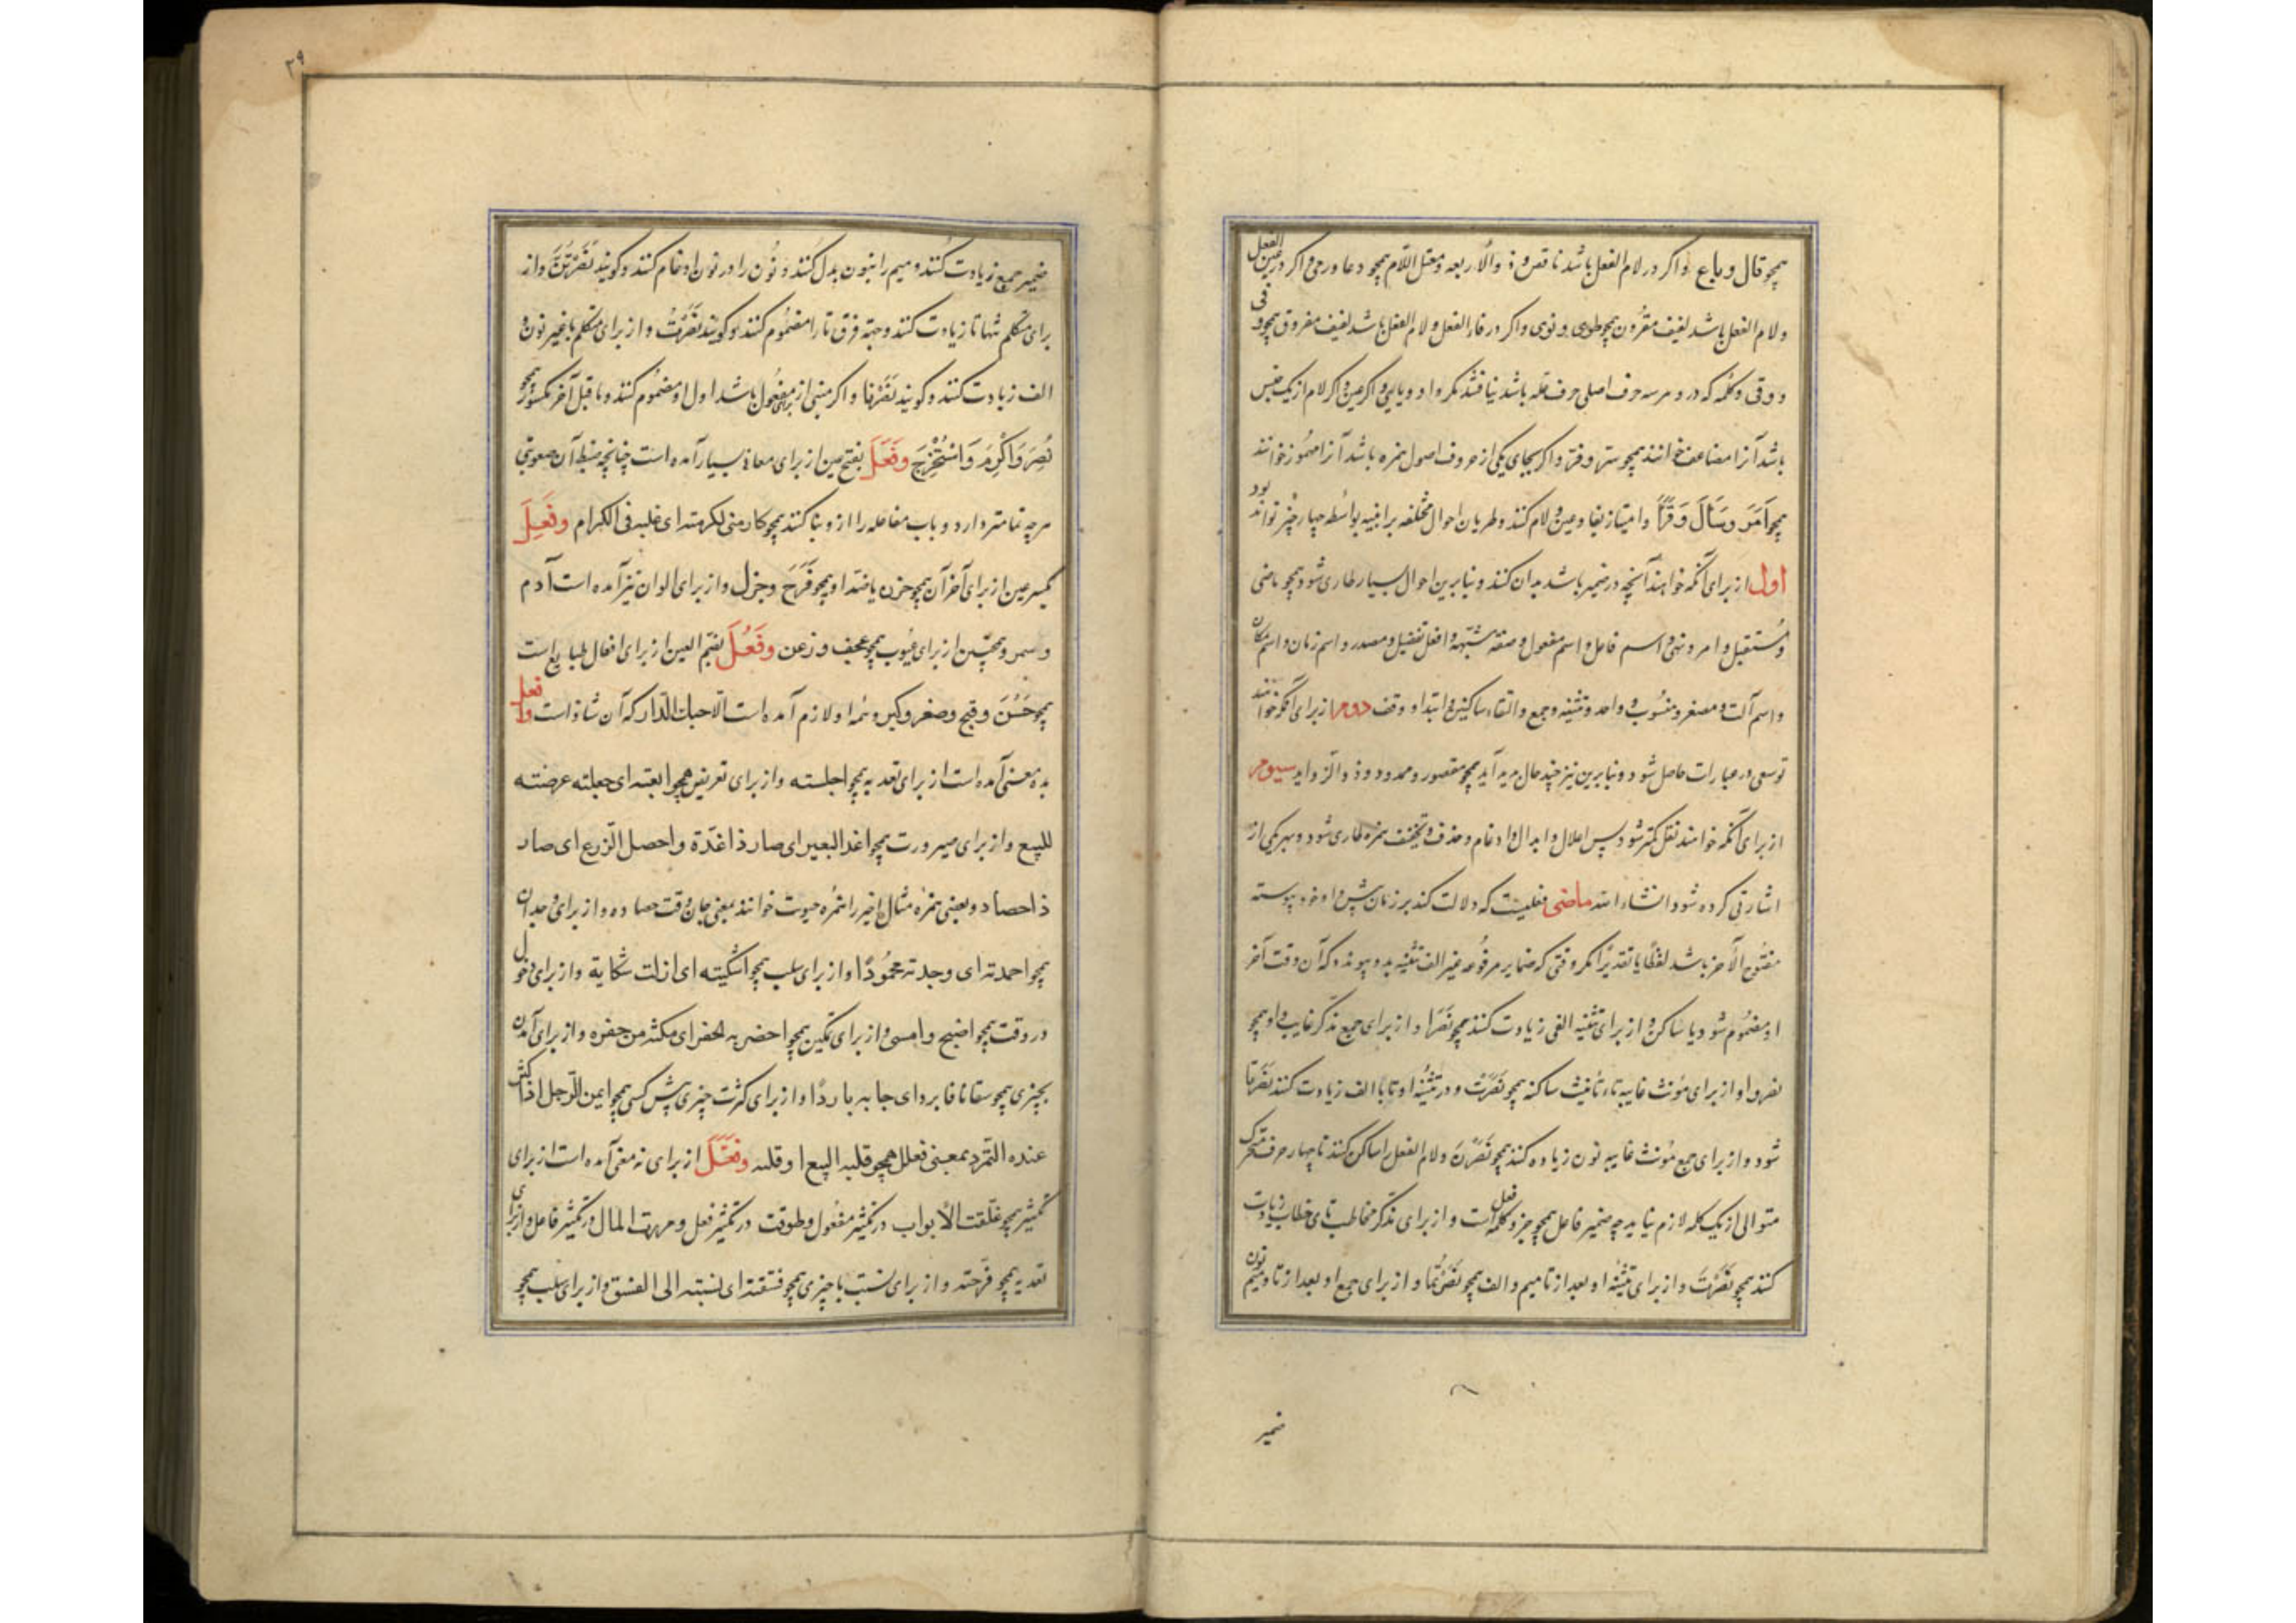 همچو قال و باع و اکر در لام الفعل باشد ناقص و ذو الاربعه و معتل اللام همچو دعا و رمی و اکر در عین الفعل
و لام الفعل باشد لفیف مقرون همچو طوی و نوی و اکر در فاء الفعل و لام الفعل باشد لفیف مفروق همچو وفی
و وقی و کلمه که در و هر سه حرف اصلی حرف عله باشد نیافتند مکر واو و یایی و اکر عین و اکر لام از یک جنس
باشد آنرا مضاعف خوانند همچو و اکر بجای یکی از حروف اصول همزه باشد آنرا مهموز خوانند
همچو اَمَرَ و سَأَلَ وَ قَرَأَ و امتیاز بفا و عین و لام کنند و طریان احوال مختلفه بر ابنیه بواسطه چهار چیز تواند بود
اول از برای آنکه خواهند آنچه در ضمیر باشد بدان کنند و بنا برین احوال بسیار طاری شود همچو ماضی
و مستقبل و امر و نهی و اسم فاعل و اسم مفعول و صفة مشبّهه و افعل تفضیل و مصدر و اسم زمان و اسم مکان
و اسم آلت و مصغر و منسوب و واحد و تثنیه و جمع و التقاء ساکنین و ابتدا و وقف دوم از برای آنکه خوانند
توسعی در عبارات حاصل شود و بنا برین نیز چند حال پدید آید همچو مقصور و ممدود و ذو الزواید سیوم
از برای آنکه خواهند ثقل کمتر شود پس اعلال و ابدال و ادغام و حذف و تخفیف همزه طاری شود و بهر یکی از
اشارتی کرده شود انشاء الله ماضی فعلیست که دلالت کند بر زمان پیش و او پیوسته
مفتوح الآخر باشد لفظًا یا تقدیرًا مکر وقتی که ضمایر مرفوعه غیر الف تثنیه بدو پیوندد که آن وقت آخر
او مضموم شود یا ساکن و از برای تثنیه الفی زیادت کنند همچو نَصَرَا و از برای جمع مذکر غایب واو همچو
نصروا و از برای مؤنث غایبه تاء تأنیث ساکنه همچو نَصَرَتْ و در تثنیهٔ او تا با الف زیادت کنند نَصَرَتَا
شود و از برای جمع مؤنث غایبه نون زیاده کنند همچو نَصَرْنَ و لام الفعل را ساکن کنند تا چهار حرف متحرک
متوالی از یک کلمه لازم نیاید چه ضمیر فاعل همچو جزو کلمهٔ فعل است و از برای مذکر مخاطب تای خطاب زیادت
کنند همچو نَصَرْتَ و از برای تثنیهٔ او بعد از تا میم و الف همچو نَصَرْتُمَا و از برای جمع او بعد از تا و میم نون
ضمیر
۲۹
ضمیر جمع زیادت کنند و میم را بنون بدل کنند و نون را در نون ادغام کنند و کویند نَصَرْتُنَّ و از
برای متکلم تنها تا زیادت کنند و جهة فرق تا را مضموم کنند و کویند نَصَرْتُ و از برای متکلم با غیر نون و
الف زیادت کنند و کویند نَصَرْنَا و اکر مبنی از برای مفعول باشد اول او مضموم کنند و ما قبل آخر مکسور همچو
نُصِرَ وَ اُکْرِمَ وَ اسْتُخْرِجَ وفَعَلَ بفتح عین از برای معانی بسیار آمده است چنانچه ضبط آن صعوبتی
هر چه تمامتر دارد و باب مغالبه را ازو بنا کنند همچو کارمنی لکرمته ای غلبه فی الکرام وفَعِلَ
بکسر عین از برای آخر آن همچو حزن یا ضد او همچو فَرِحَ و جزل و از برای الوان نیز آمده است آدم
و سمر و همچنین از برای عیوب همچو عجف و زعن وفَعُلَ بضم العین از برای افعال طبایع است
همچو حَسُنَ و قبح و صغر و کبر و ازو لازم آمده است الّا رحبک الدار که آن شاذ است وافعل
بده معنی آمده است از برای تعدیه همچو اجلسته و از برای تعریض همچو ابعته ای جعلته عرضته
للبیع و از برای صیرورت همچو اغد البعیر ای صار ذا غدّة و احصد الزرع ای صار
ذا حصاد و بعضی همزه مثال اخیر را همزه حینونت خوانند یعنی حان وقت حصاده و از برای وجدان
همچو احمدته ای وجدته محمودًا و از برای سلب همچو اشکیته ای ازلت شکایة و از برای دخول
در وقت همچو اصبح و امسی و از برای تمکین همچو احضربه الحفر ای مکنته من حفره و از برای آمدن
بچیزی همچو سقانا فابرد ای جا به باردًا و از برای کثرت چیزی پیش کسی همچو ایمن الرجل اذا کثر
عنده التمر و بمعنی فعلل همچو قلبه البیع او قلبه وفَعَّلَ از برای نه معنی آمده است از برای
تکثیر همچو غلقت الابواب در تکثیر مفعول و طوفت در تکثیر فعل و موت المال در تکثیر فاعل و از برای
تعدیه همچو فرّحته و از برای نسبت با چیزی همچو فسّقته ای نسبته الی الفسق و از برای سلب همچو